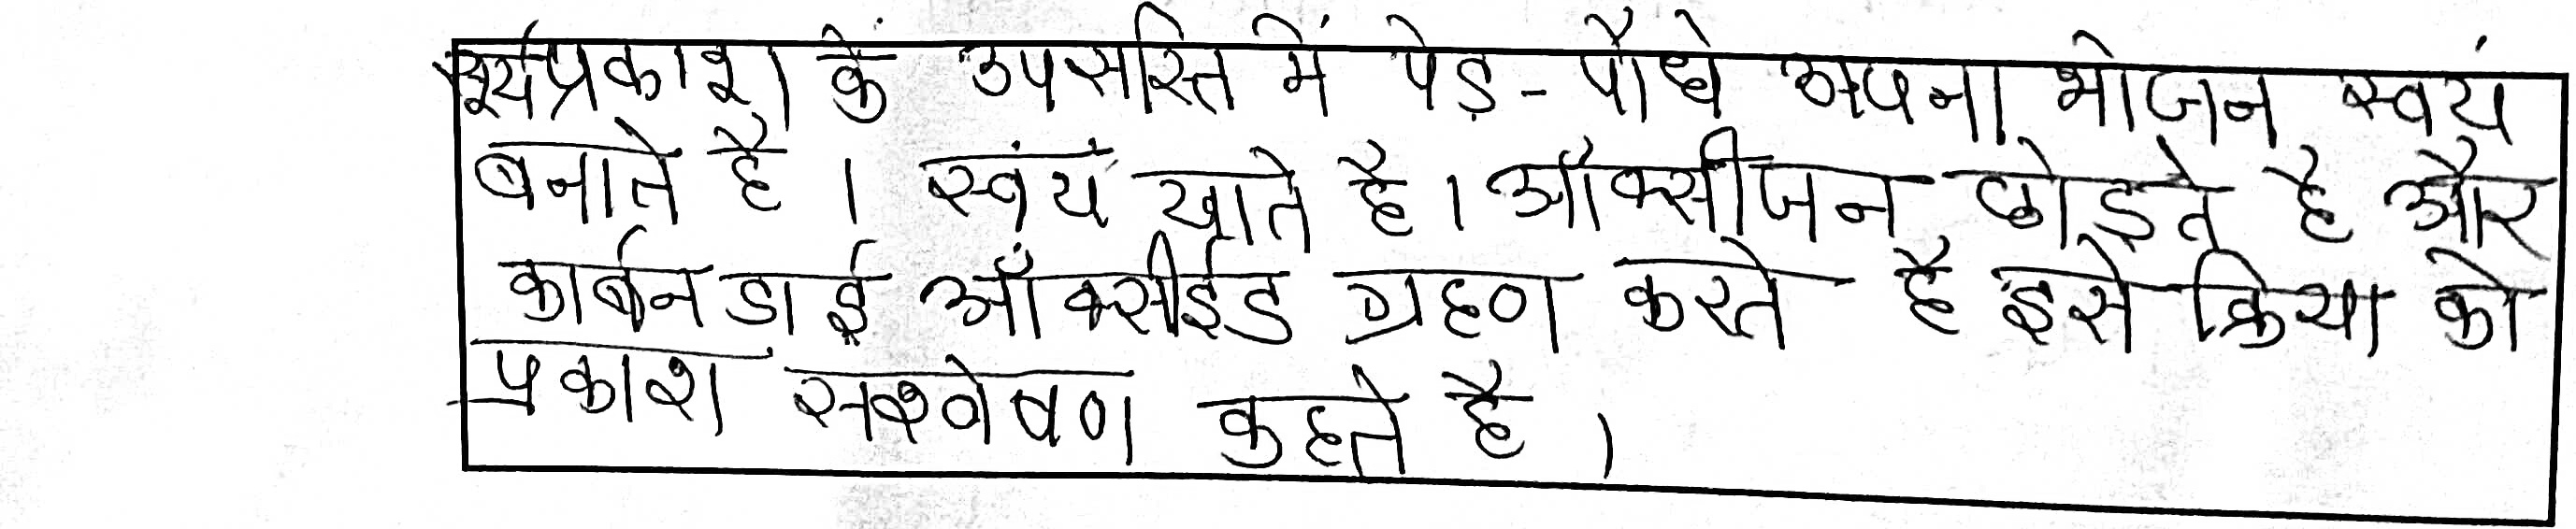 सूर्यप्रकाश के उपसस्ति में पेड़-पौधे अपना भोजन स्वयं
बनाते है। स्वंयं खाते है। ऑक्सीजन छोड़ते है और
कार्बन डाई ऑक्सीईड ग्रहण करते है इसे क्रिया को
प्रकाश सश्लेषण कहते है।